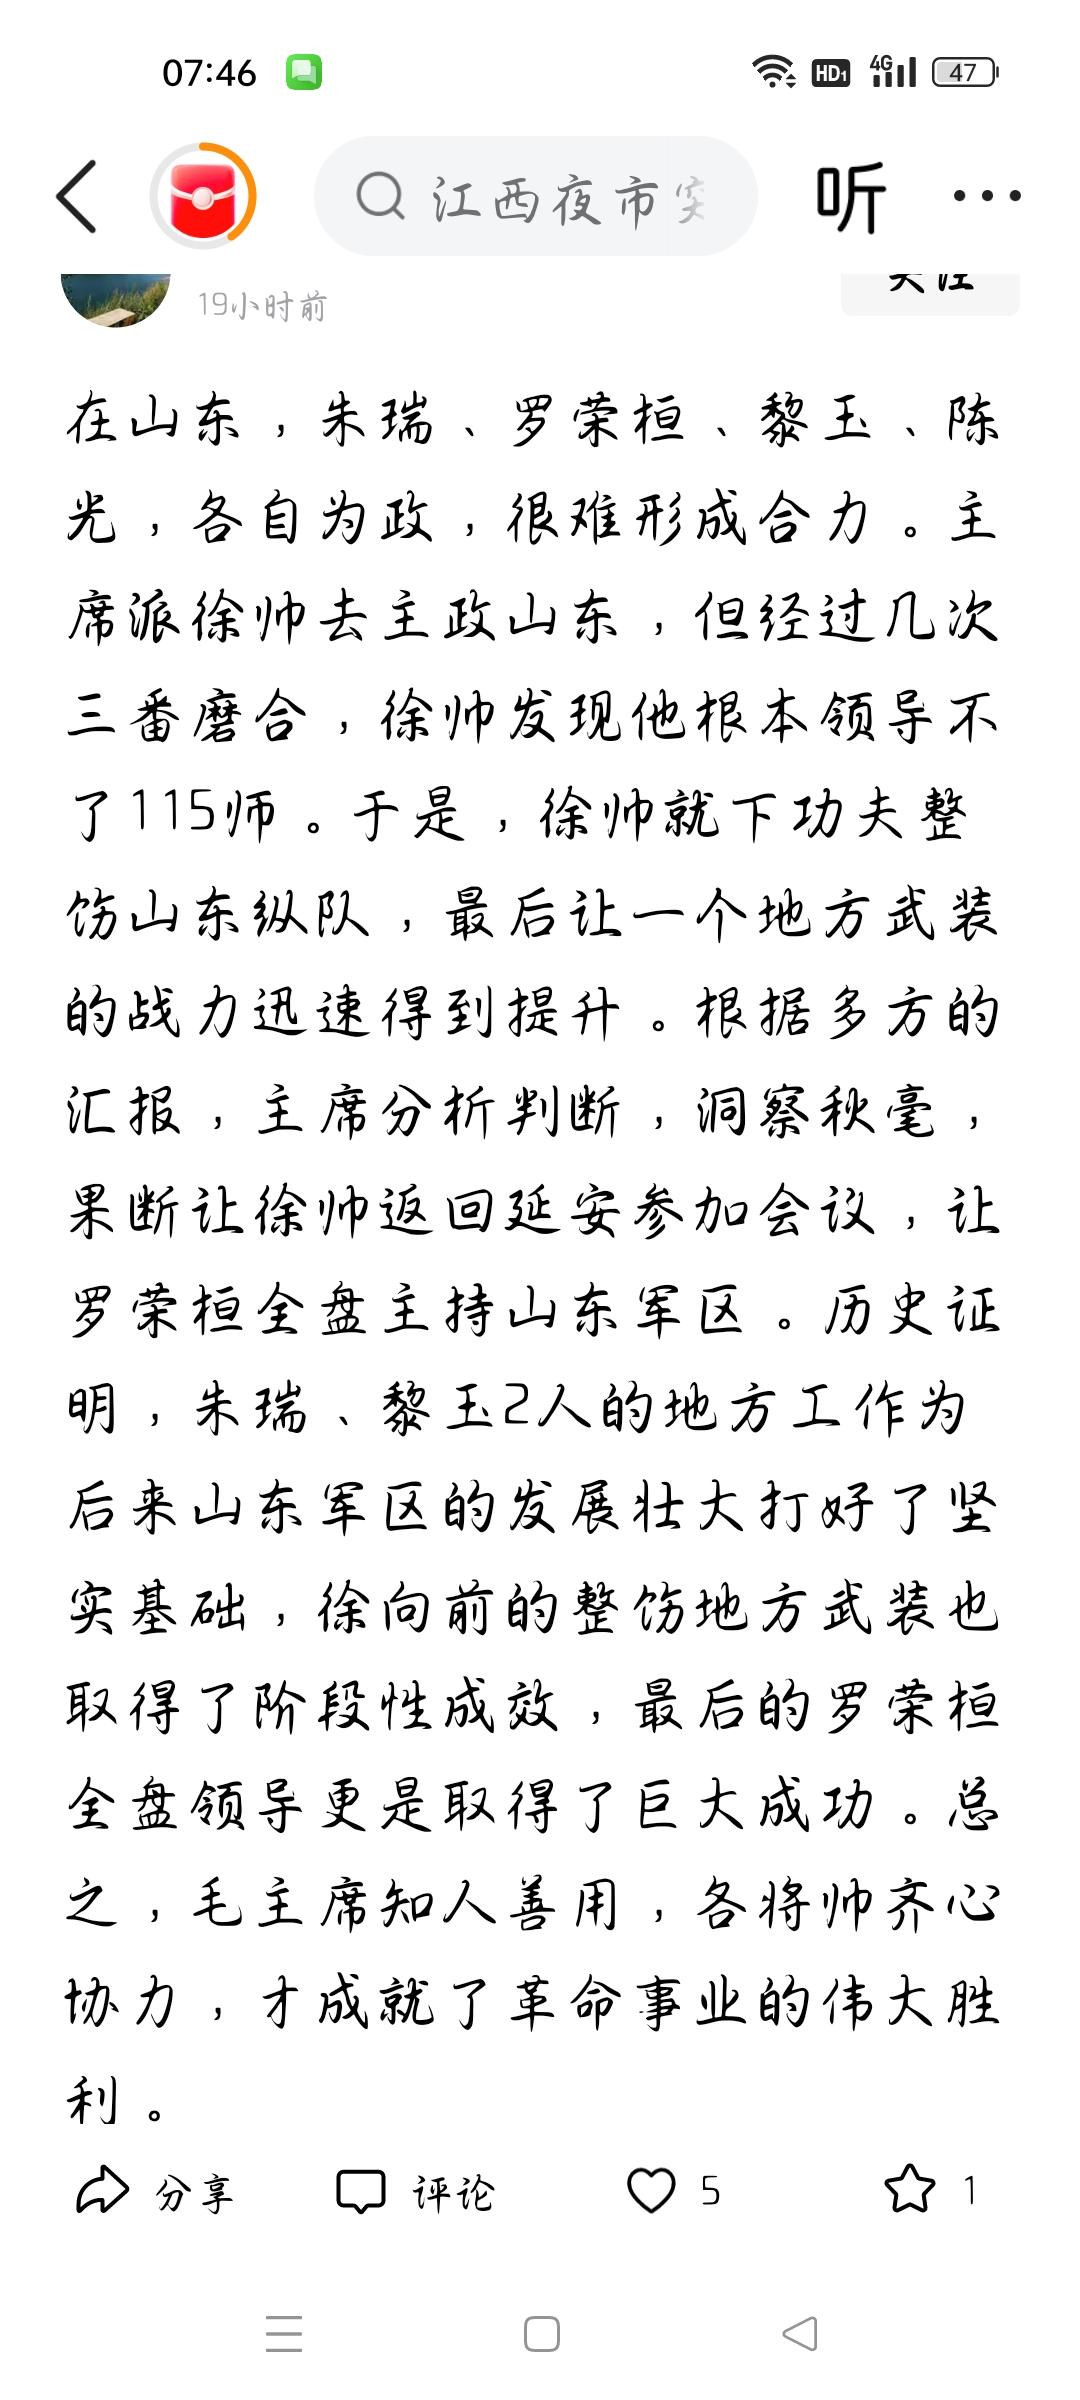 07:46
HD1 4G 47
江西夜市
听
19小时前
在山东，朱瑞、罗荣桓、黎玉、陈
光，各自为政，很难形成合力。主
席派徐帅去主政山东，但经过几次
三番磨合，徐帅发现他根本领导不
了115师。于是，徐帅就下功夫整
饬山东纵队，最后让一个地方武装
的战力迅速得到提升。根据多方的
汇报，主席分析判断，洞察秋毫，
果断让徐帅返回延安参加会议，让
罗荣桓全盘主持山东军区。历史证
明，朱瑞、黎玉2人的地方工作为
后来山东军区的发展壮大打好了坚
实基础，徐向前的整饬地方武装也
取得了阶段性成效，最后的罗荣桓
全盘领导更是取得了巨大成功。总
之，毛主席知人善用，各将帅齐心
协力，才成就了革命事业的伟大胜
利。
分享 评论 5 1